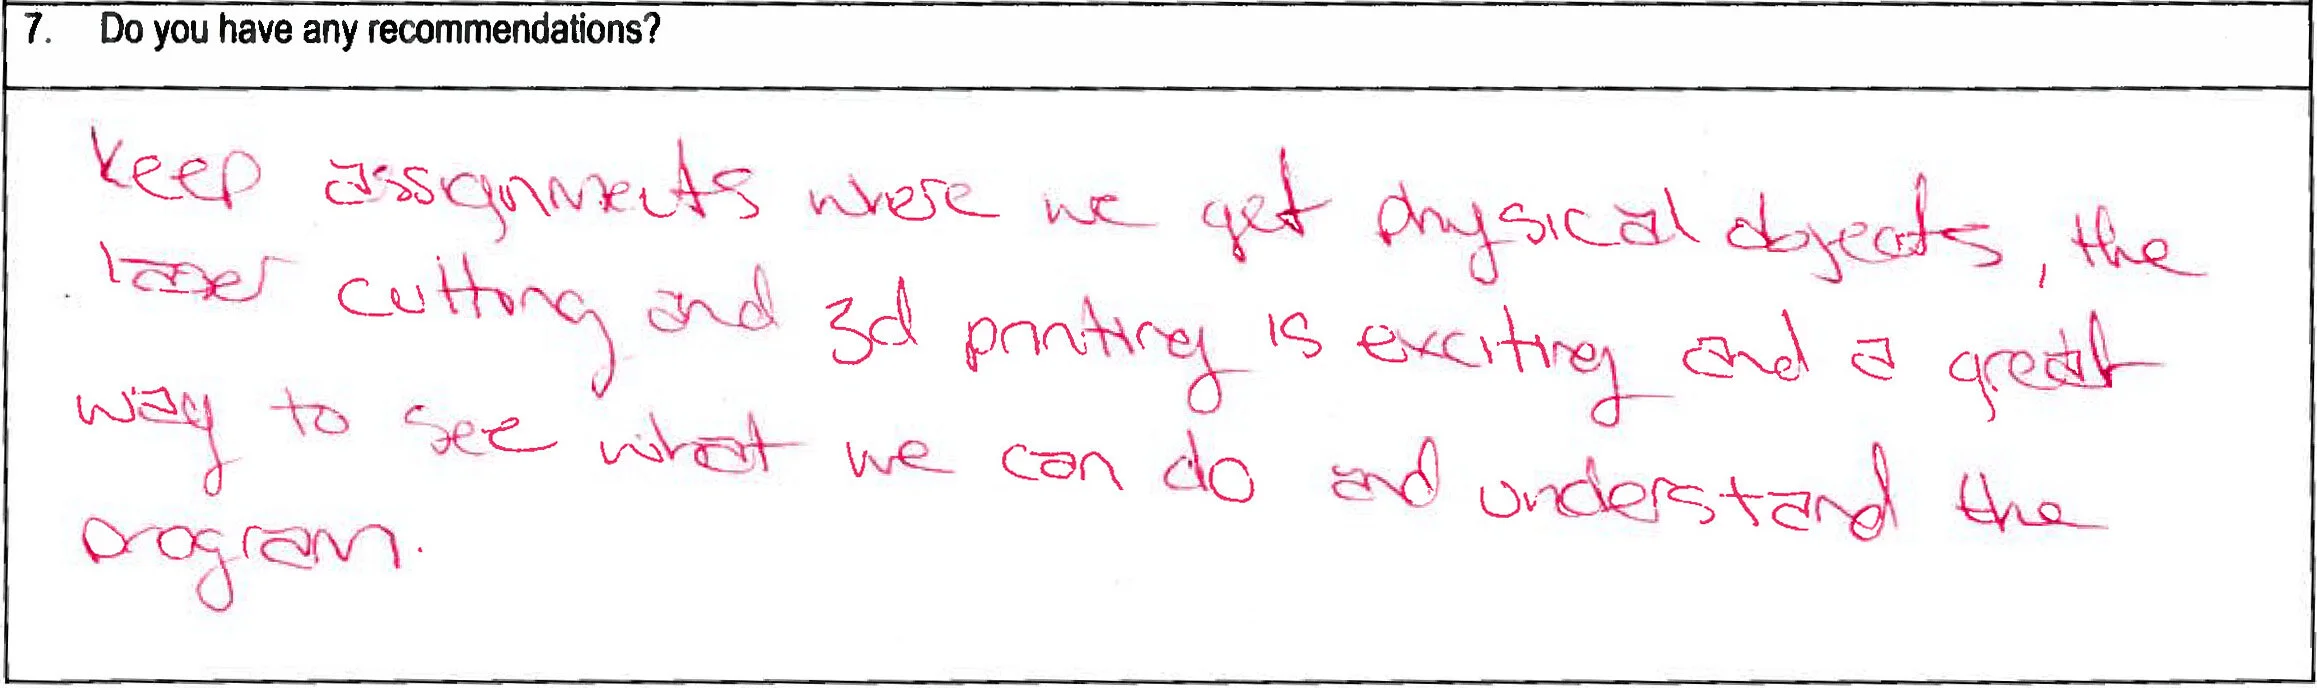 7. Do you have any recommendations?
Keep assignments where we get physical objects, the
laser cutting and 3d printing is exciting and a great
way to see what we can do and understand the
program.